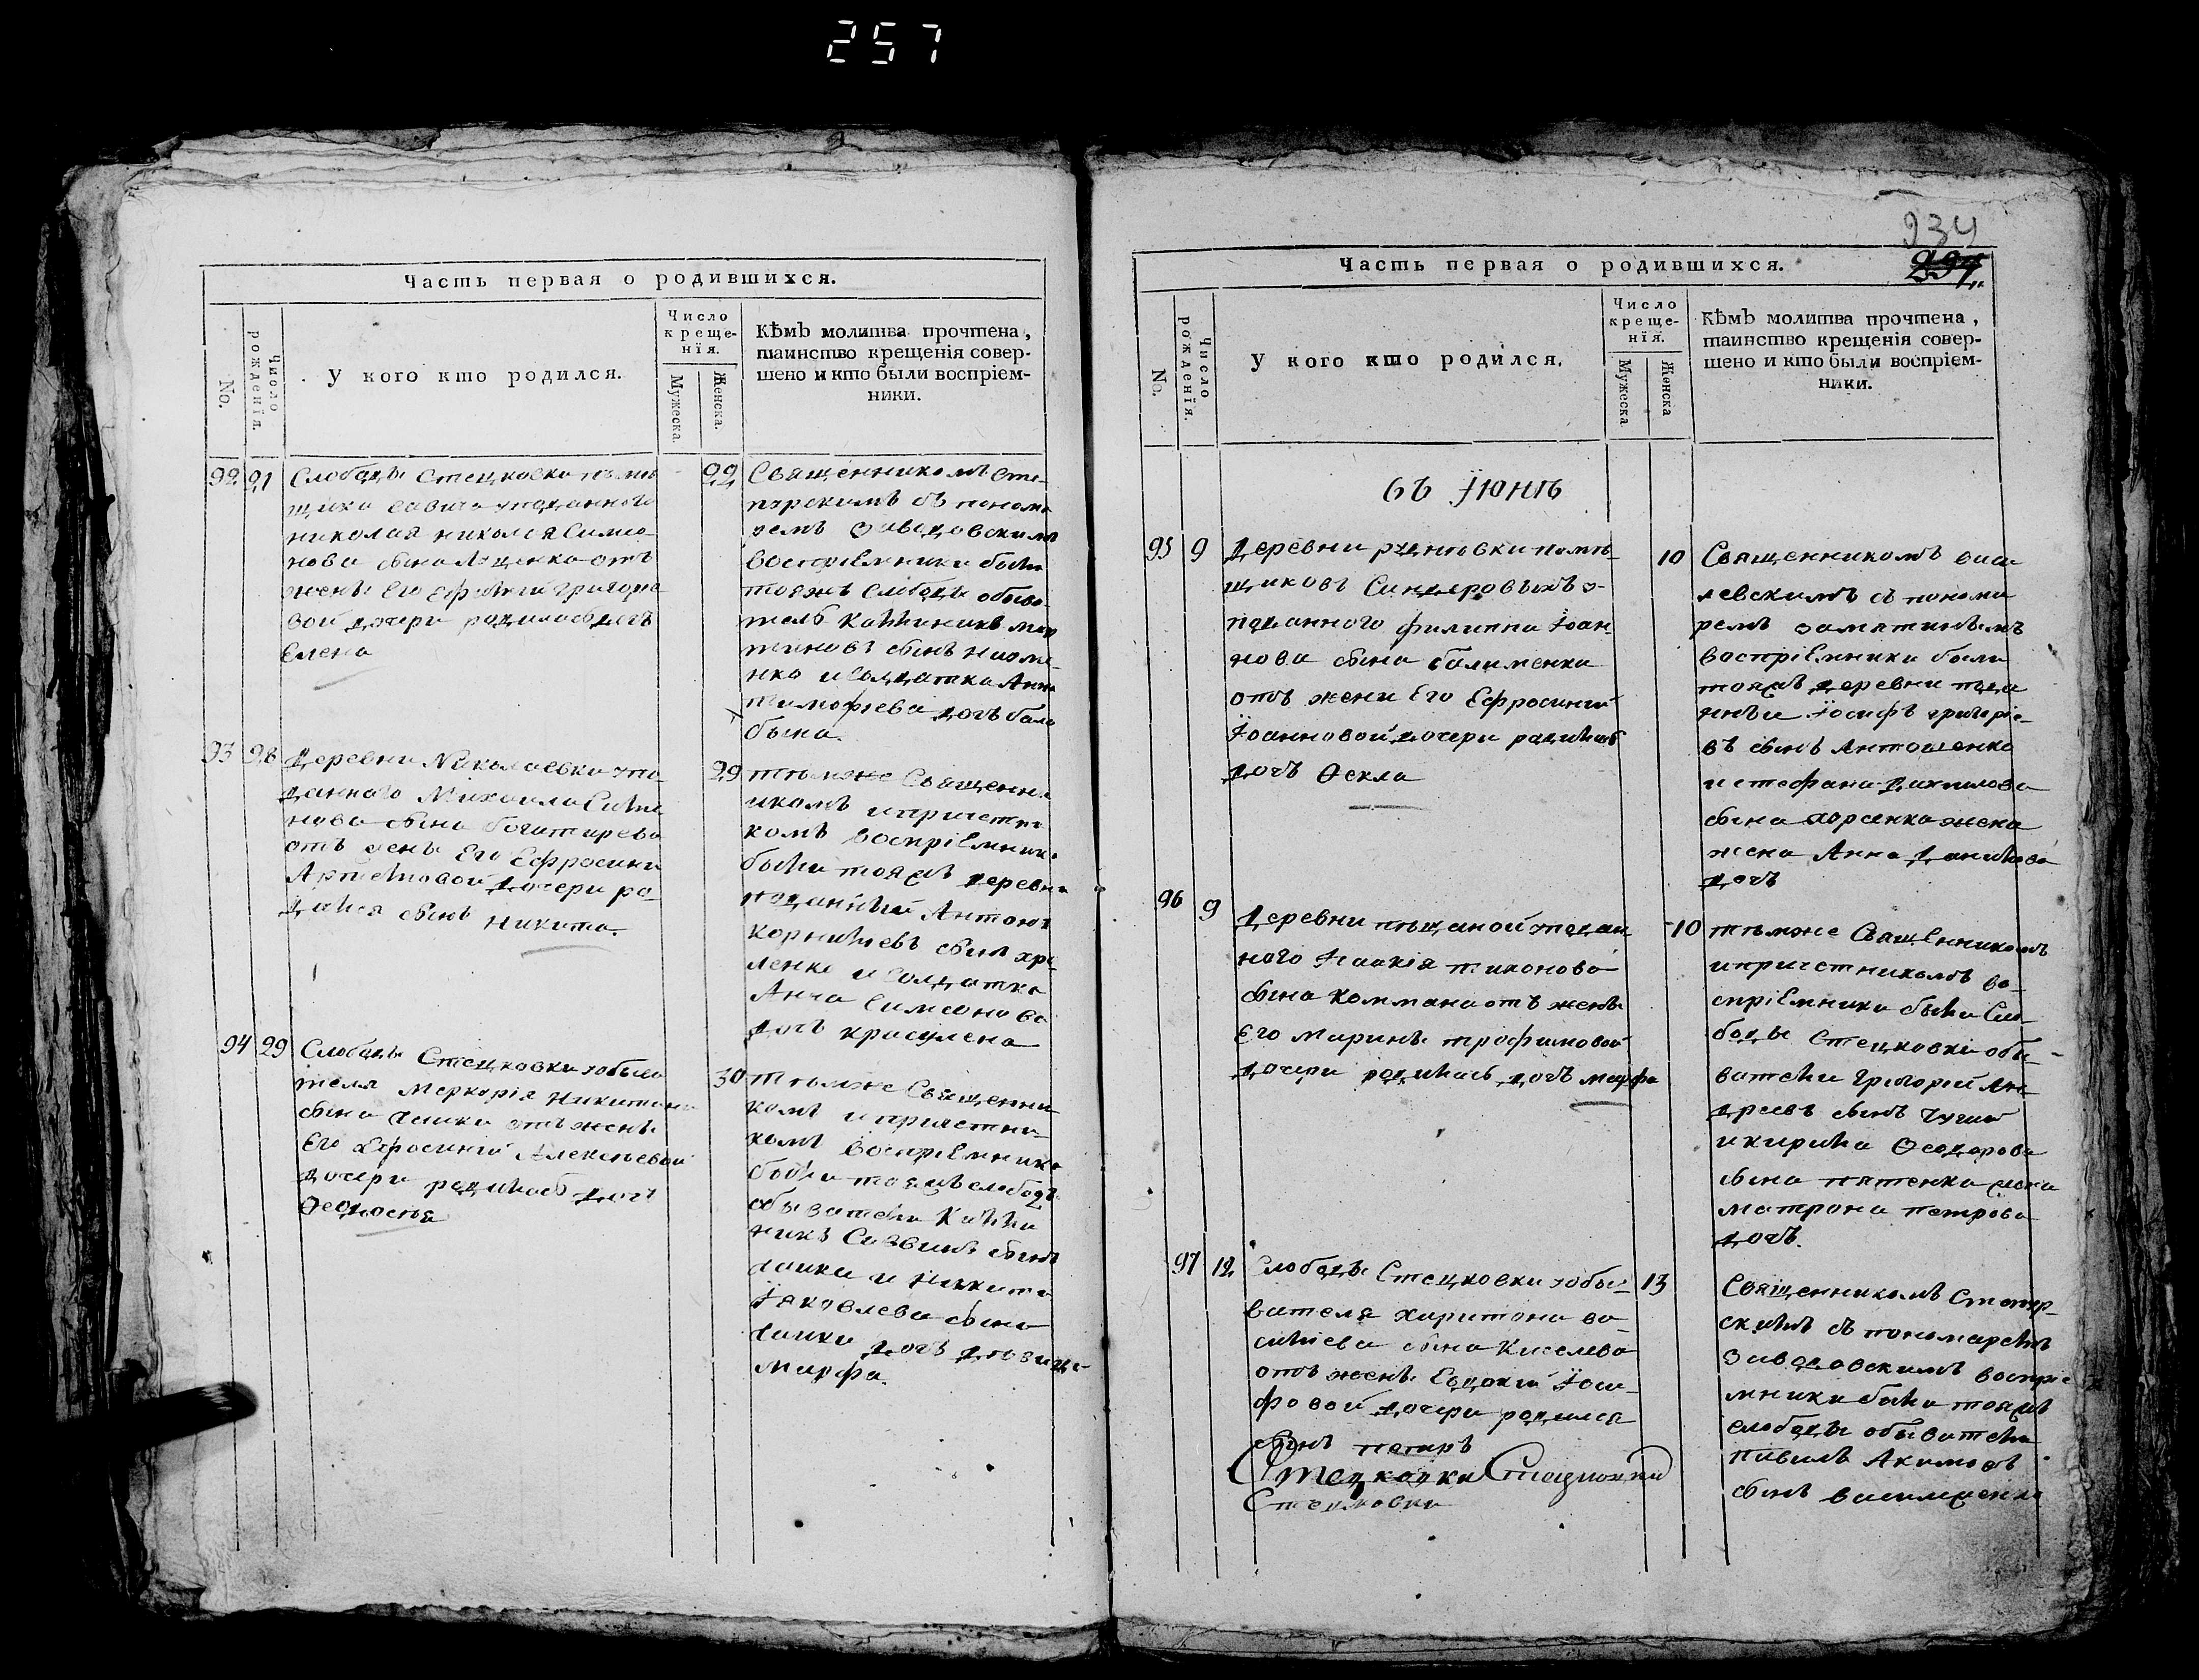 257
Часть первая о родившихся.
No.
Число рожденїя.
У кого кто родился.
Число
креще-
нїя.
Мужеска.
Женска.
Кѣмъ молитва прочтена,
таинство крещенія совер-
шено и кто были воспріем-
ники.
92
21
Слободы Стецковки помѣ
щика Савича уподданного
николая николая Симо-
нова сына Луценка отъ
жены Его Ефиміи григорие
вой дочери родиласъ дочъ
Елена
22
Священникомъ Сте-
пурскимъ съ понома
ремъ Заводовскимъ
воспріемники были
тояжъ слободы обыва-
телъ Каллиникъ мар
тиновъ сынъ
нко и солдатка Анна
тимофѣева дочъ бала
бына.
93
28
Деревни Николаевки упо
данного Михаила Силиа
нова сына богатирева
отъ жены Его Ефросини
Артемовой дочери ро-
дился сынъ Никита.
29
тѣмже Священни
икомъ и причетни
комъ воспріемники
были тояжъ деревни
подданній Антоній
Корніліевъ сынъ хро
ленко и солдатка
Анна Симеонова
дочъ красулена
94
29
Слободы Стецковки уобыва
теля Меркорія Никитина
сына Саики отъ жены
Его Ефросиніи Алексѣевой
дочери родиласъ дочъ
Ѳеодосія
30
тѣмже Священни-
комъ и причетни-
комъ воспріемники
были тояжъ слободы
обыватели Калли
никъ Саввинъ сынъ
Саика и Никита
Іяковлева сына
саики дочъ дѣвица
Марфа.
934
297
Часть первая о родившихся.
No.
Число рожденїя.
У кого кто родился.
Число
креще-
нїя.
Мужеска
Женска
Кѣмъ молитва прочтена,
таинство крещенія совер-
шено и кто были воспріем-
ники.
Въ Іюнѣ
95
9
Деревни руднѣвки помѣ-
щиковъ Синдеровыхъ у-
подданного филиппа Іоан-
нова сына балименка
отъ жени Его Ефросиніи
Іоанновой дочери родиласъ
дочъ Ѳекла
10
Священникомъ васи
левскимъ съ понома
ремъ Замятинымъ
воспріемники были
тояжъ деревни подда
нныи Іосифъ григоріе-
въ сынъ Антошенко
и стефана Даниилова
сына хорсенка жена
жена Анна Данилова
дочъ
96
9
Деревни пѣщаной уподдан
ного Ісаакія тихонова
сына Коммана отъ жены
Его Марины трофимовой
дочери родиласъ дочъ марфа
10
тѣмже Священникомъ
и причетникомъ во-
спріемники были Сло-
боды Стецковки обы-
ватели Григорій Ан-
дреевъ сынъ Чугай
и кирила Ѳеодорова
сына пятенка жена
матрона петрова
дочъ.
97
12
Слободы Стецковки уобы-
вателя харитона ва-
силіева сына Киселева
отъ жены Евдокіи Іоси-
фовой дочери родился
сынъ петръ
Стецковки
Стецковки
13
Священникомъ Степур-
скимъ съ пономаремъ
Заводовскимъ воспріе
мники были тояжъ
слободы обыватели
павилъ Акимовъ
сынъ василшенко